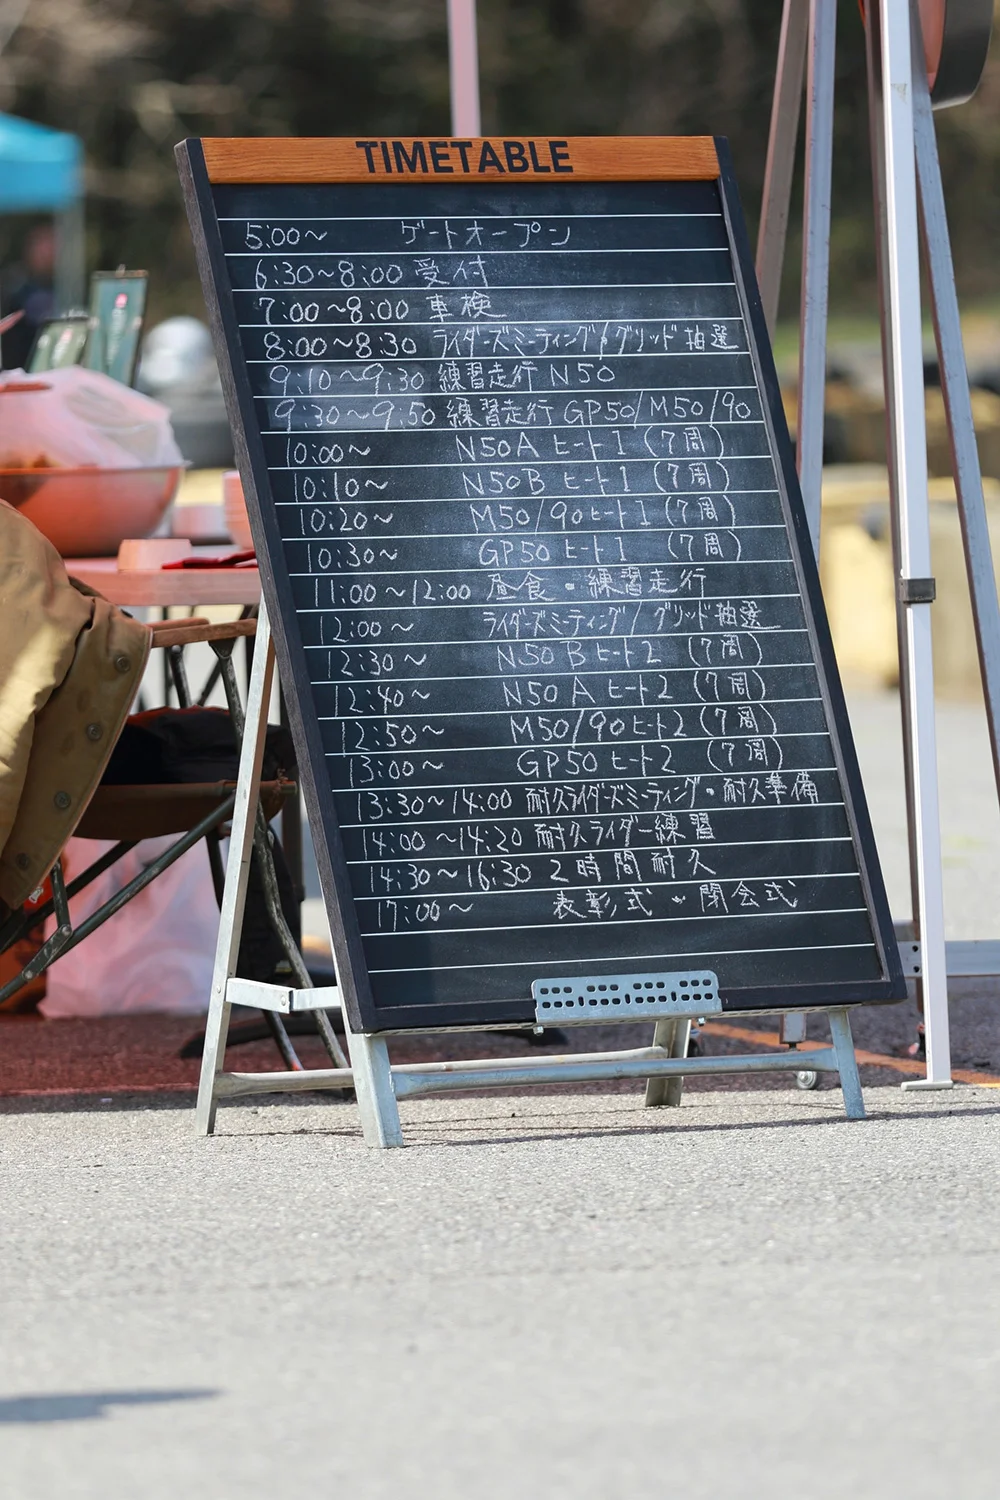 TIMETABLE
5:00～ ゲートオープン
6:30～8:00 受付
7:00～8:00 車検
8:00～8:30 ライダーズミーティング/グリッド抽選
9:10～9:30 練習走行 N50
9:30～9:50 練習走行 GP50/M50/90
10:00～ N50A ヒート1 (7周)
10:10～ N50B ヒート1 (7周)
10:20～ M50/90ヒート1 (7周)
10:30～ GP50 ヒート1 (7周)
11:00～12:00 昼食・練習走行
12:00～ ライダーズミーティング/グリッド抽選
12:30～ N50B ヒート2 (7周)
12:40～ N50A ヒート2 (7周)
12:50～ M50/90ヒート2 (7周)
13:00～ GP50 ヒート2 (7周)
13:30～14:00 耐久ライダーズミーティング・耐久準備
14:00～14:20 耐久ライダー練習
14:30～16:30 2時間耐久
17:00～ 表彰式・閉会式